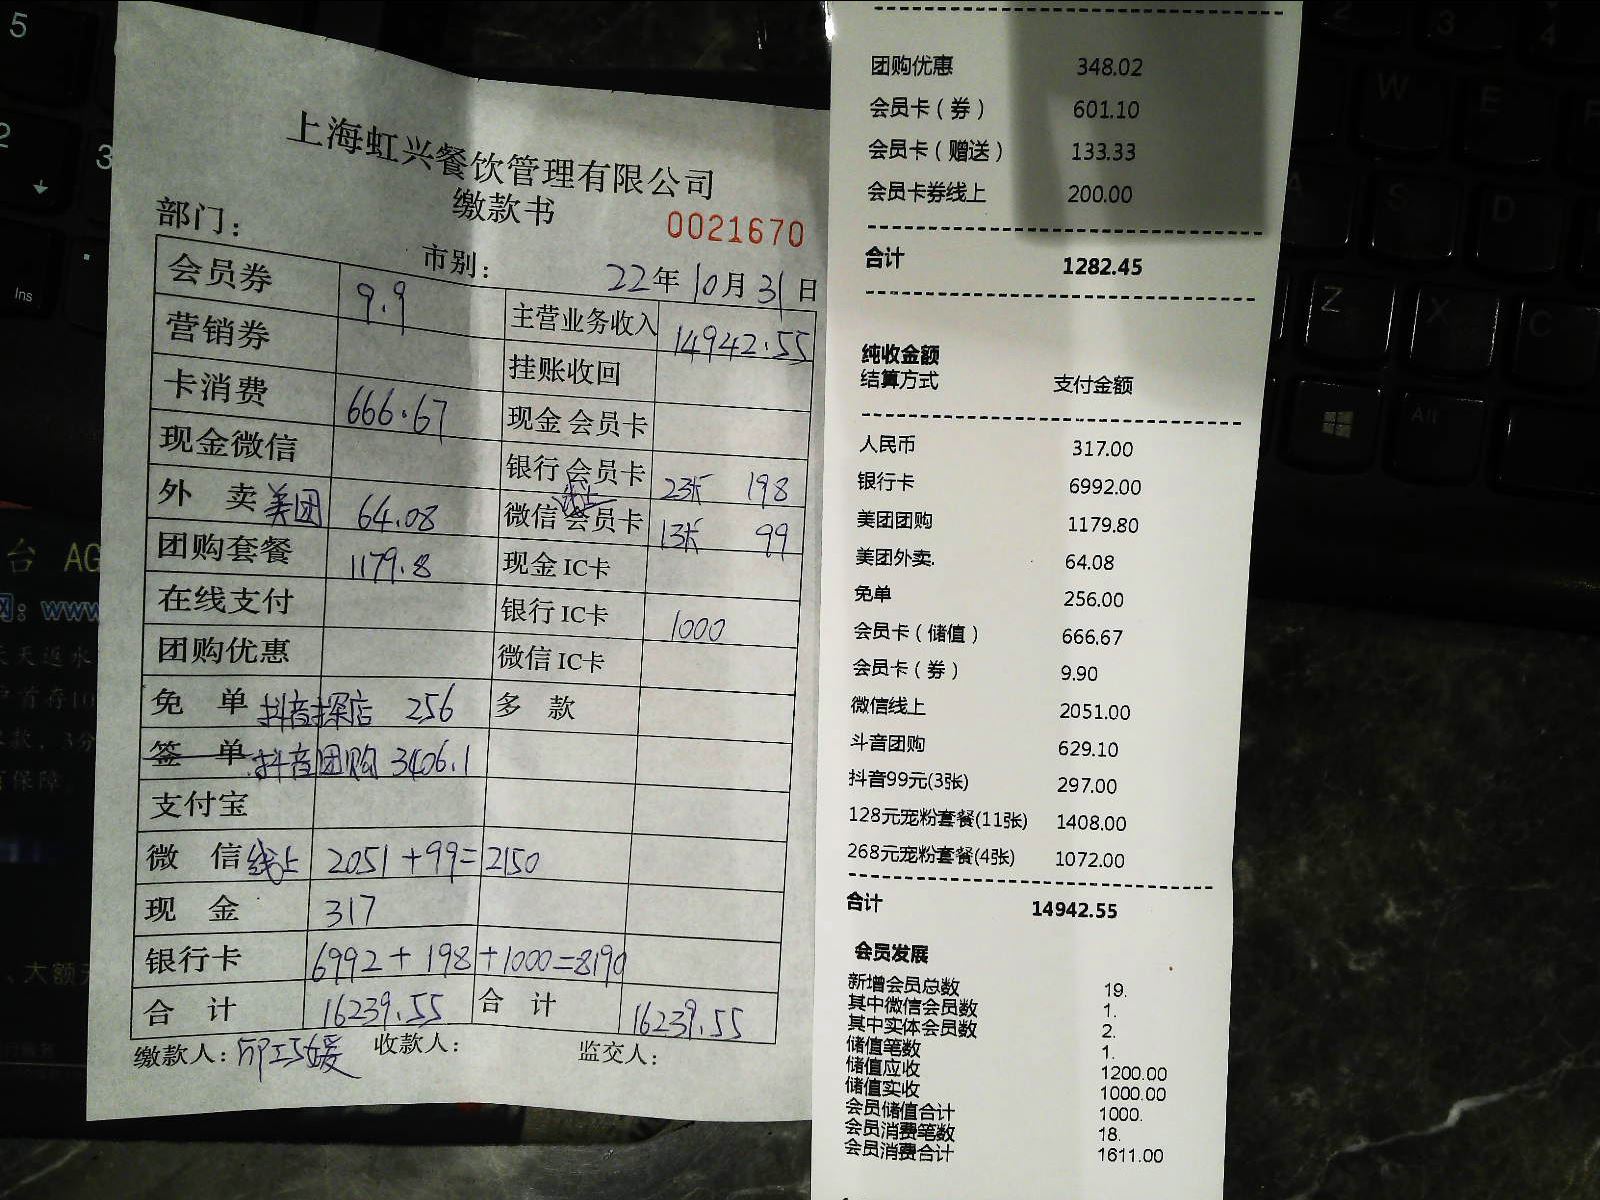 上海虹兴餐饮管理有限公司
缴款书
0021670
部门：
市别：
22年10月31日
会员券 9.9 主营业务收入 14942.55
营销券 挂账收回
卡消费 666.67 现金会员卡
现金微信 银行会员卡 2张 198
外 卖 美团 64.08 微信 线上 会员卡 1张 99
团购套餐 1179.8 现金IC卡
在线支付 银行IC卡 1000
团购优惠 微信IC卡
免 单 抖音探店 256 多 款
签 单 抖音团购 3406.1
支付宝
微 信 线上 2051+99=2150
现 金 317
银行卡 6992+198+1000=8190
合 计 16239.55 合 计 16239.55
缴款人： 收款人： 监交人：
团购优惠 348.02
会员卡（券） 601.10
会员卡（赠送） 133.33
会员卡券线上 200.00
合计 1282.45
纯收金额
结算方式 支付金额
人民币 317.00
银行卡 6992.00
美团团购 1179.80
美团外卖. 64.08
免单 256.00
会员卡（储值） 666.67
会员卡（券） 9.90
微信线上 2051.00
斗音团购 629.10
抖音99元(3张) 297.00
128元宠粉套餐(11张) 1408.00
268元宠粉套餐(4张) 1072.00
合计 14942.55
会员发展
新增会员总数 19.
其中微信会员数 1.
其中实体会员数 2.
储值笔数 1.
储值应收 1200.00
储值实收 1000.00
会员储值合计 1000.
会员消费笔数 18.
会员消费合计 1611.00
5
2
3
Ins
台 AG
www
Z
X
C
W
E
A
S
D
Alt